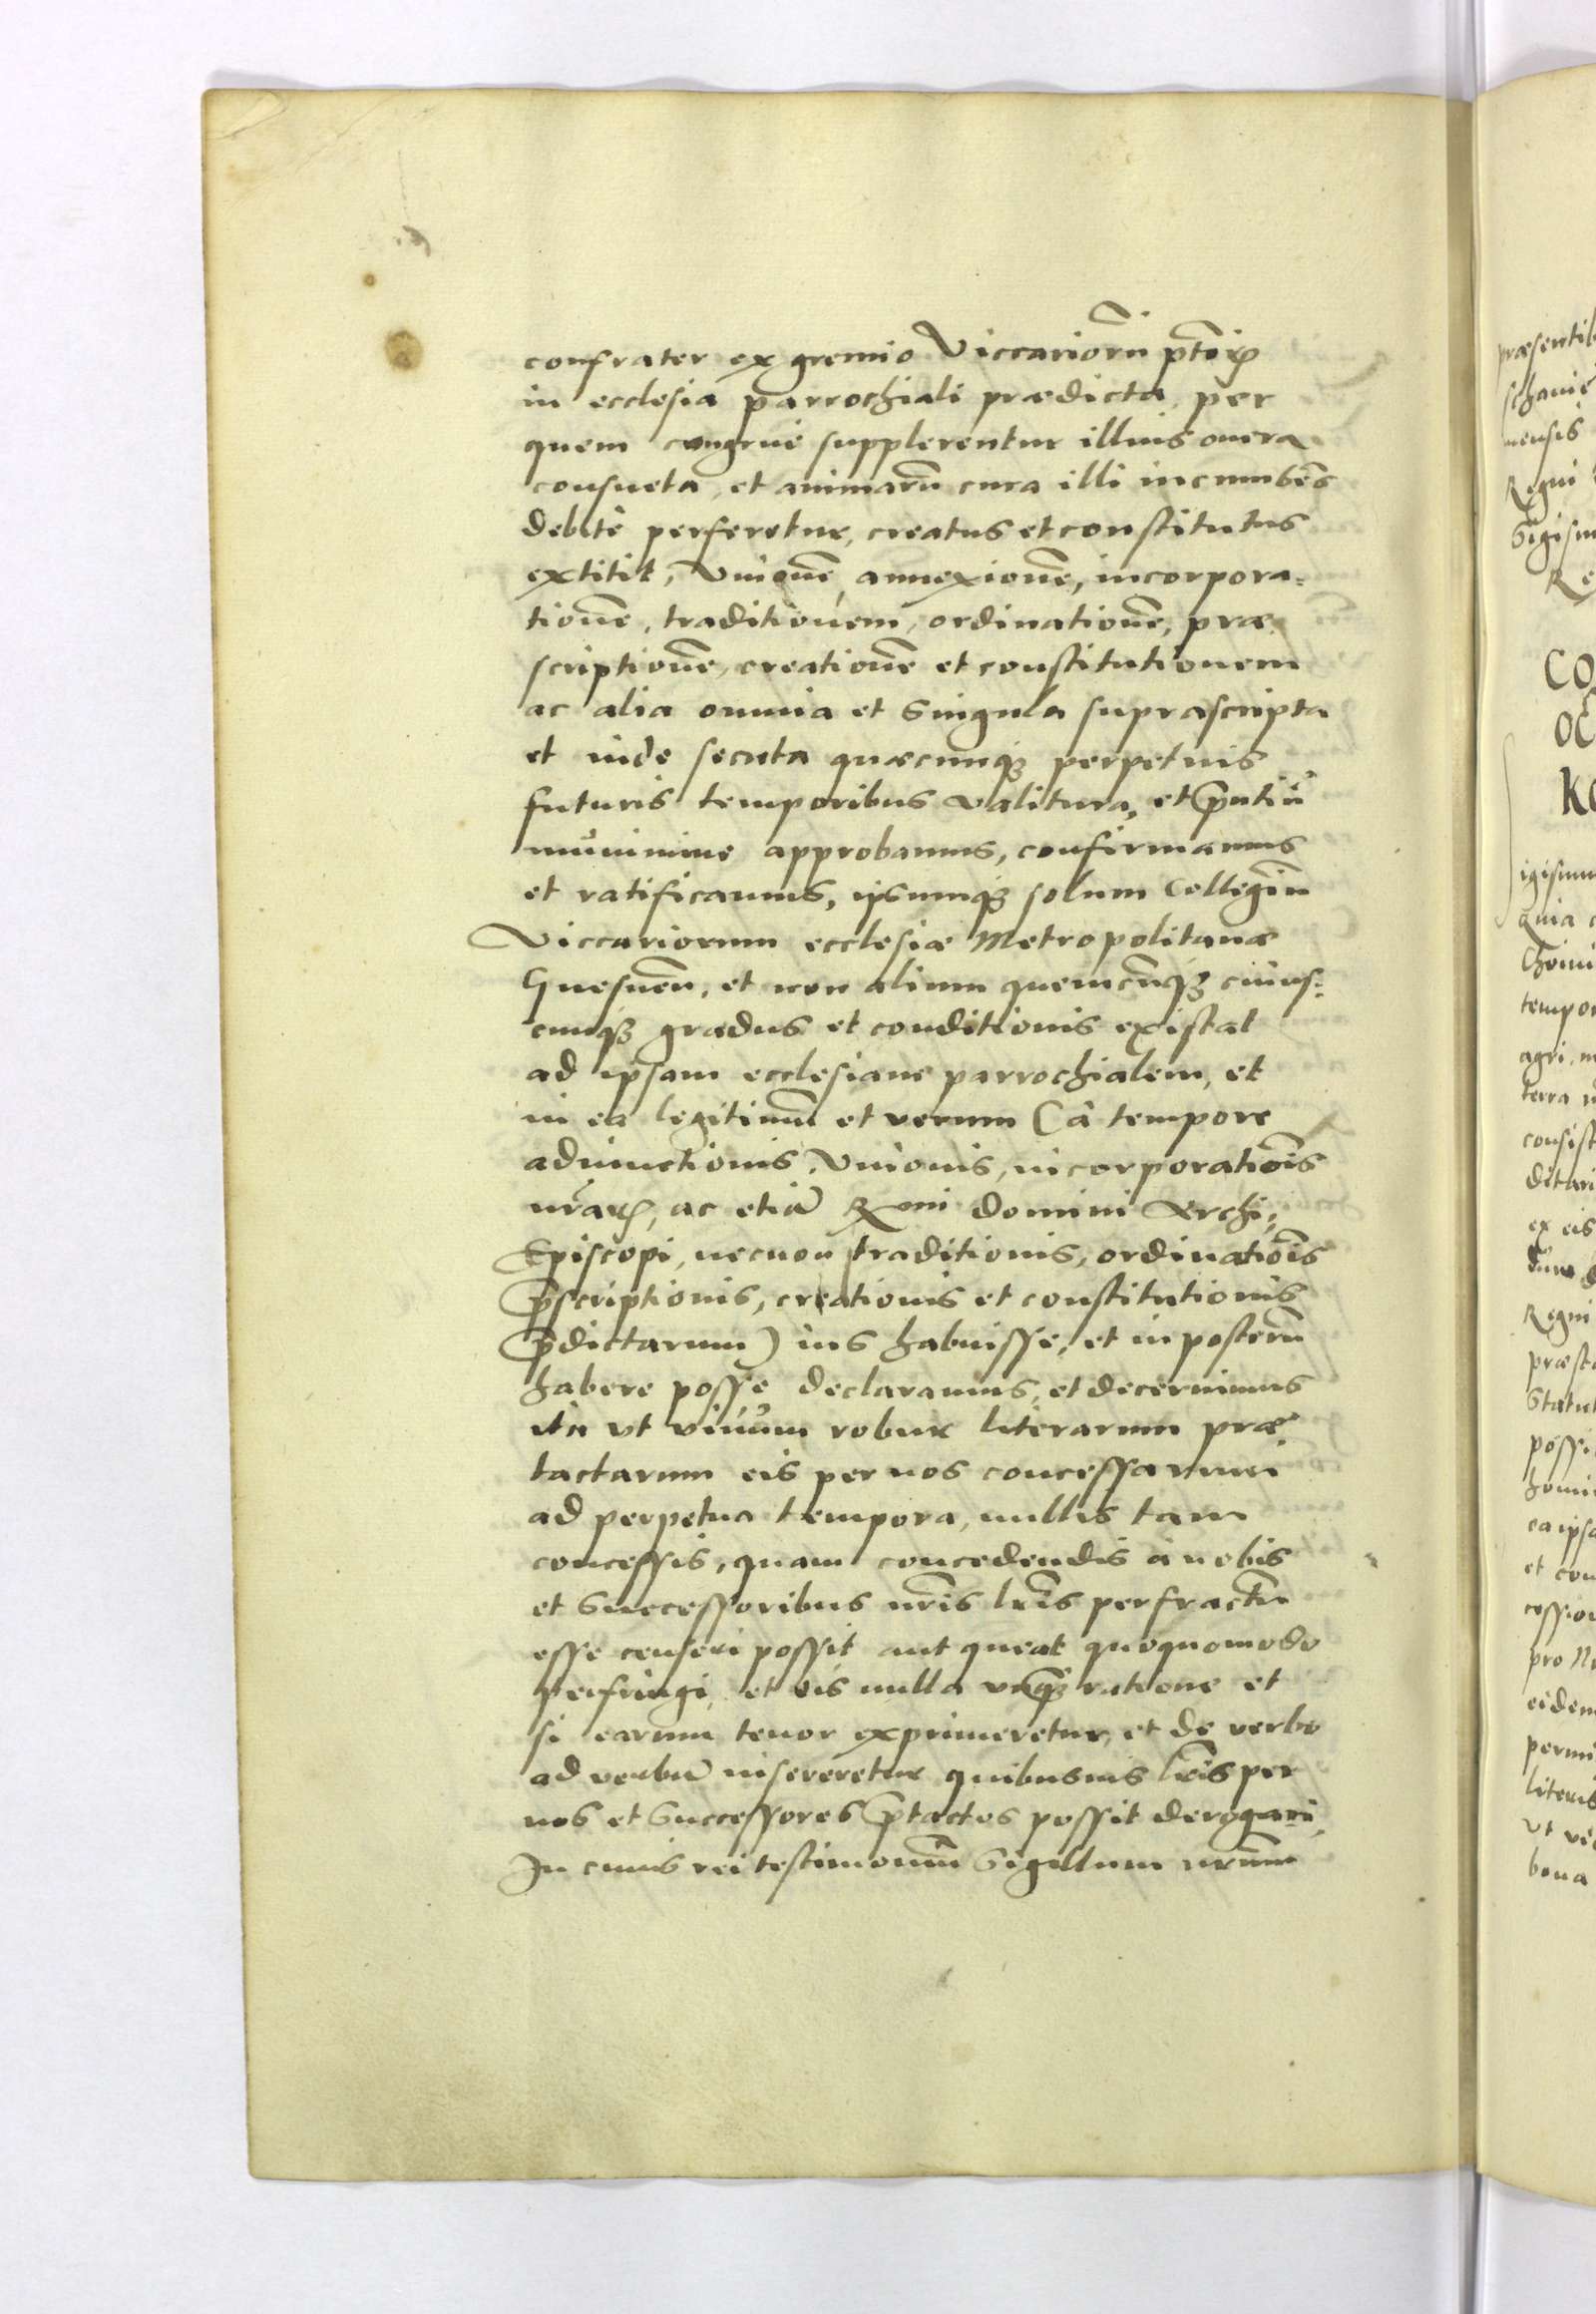 confrater ex gremio Viccariorū ptorꝝ
in ecclesia parrochiali prædicta, per
quem congruè supplerentur illius onera
consueta, et animarū cura illi incumbēs
debitè perferetur, creatus et constitutus
extitit, Vnionē, annexionē, incorpora=
tionē, traditionem, ordinationē, præ
scriptionē, creationē et constitutionem
ac alia omnia et singula suprascripta
et inde secuta quæcunqꝫ perpetuis
futuris temporibus valitura, et pn̄tiū
munimine approbamus, confirmamus
et ratificamus, ipsumqꝫ solum Collegiū
Viccariorum ecclesiæ Metropolitanæ
Gnesnen̄, et non alium quemcūqꝫ cuius=
cunqꝫ gradus et conditionis existat
ad ipsam ecclesiam parrochialem, et
in ea legitimū et verum (à tempore
adiunctionis, Vnionis, incorporatiōis
nr̄arꝝ, ac etiā Rmi domini Archi=
Episcopi, necnon traditionis, ordinatiōis
p̄scriptionis, creationis et constitutionis
p̄dictarum) ius habuisse, et in posterū
habere posse declaramus, et decernimus
ita vt viuum robur literarum præ
tactarum eis per nos concessarum
ad perpetua tempora, nullis tam
concessis, quam concedendis à nobis
et Successoribus nr̄is lr̄is perfractū
esse censeri possit aut queat quoquomodo
perfringi, et eis nulla vnqꝫ ratione et
si earum tenor exprimeretur, et de verbo
ad verbū insereretur quibusuis lr̄is per
nos et Successores p̄tactos possit derogari,
In cuius rei testimoniū Sigillum nr̄um
præsentib
schaniē
nensis
Regni
Sigism
Re
CO
OC
KO
igismu
quia
Choini
tempor
agri, m
terra
consist
ditari
ex eis
Regni
præsta
Statut
possi
homin
ea ipsa
et con
cessio
pro N
eidem
permi
literis
vt
bona